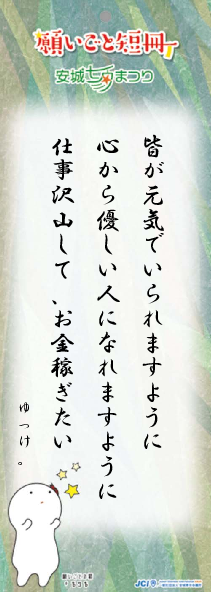 願いごと短冊
安城七夕まつり
皆が元気でいられますように
心から優しい人になれますように
仕事沢山して、お金稼ぎたい
ゆっけ。
JCI